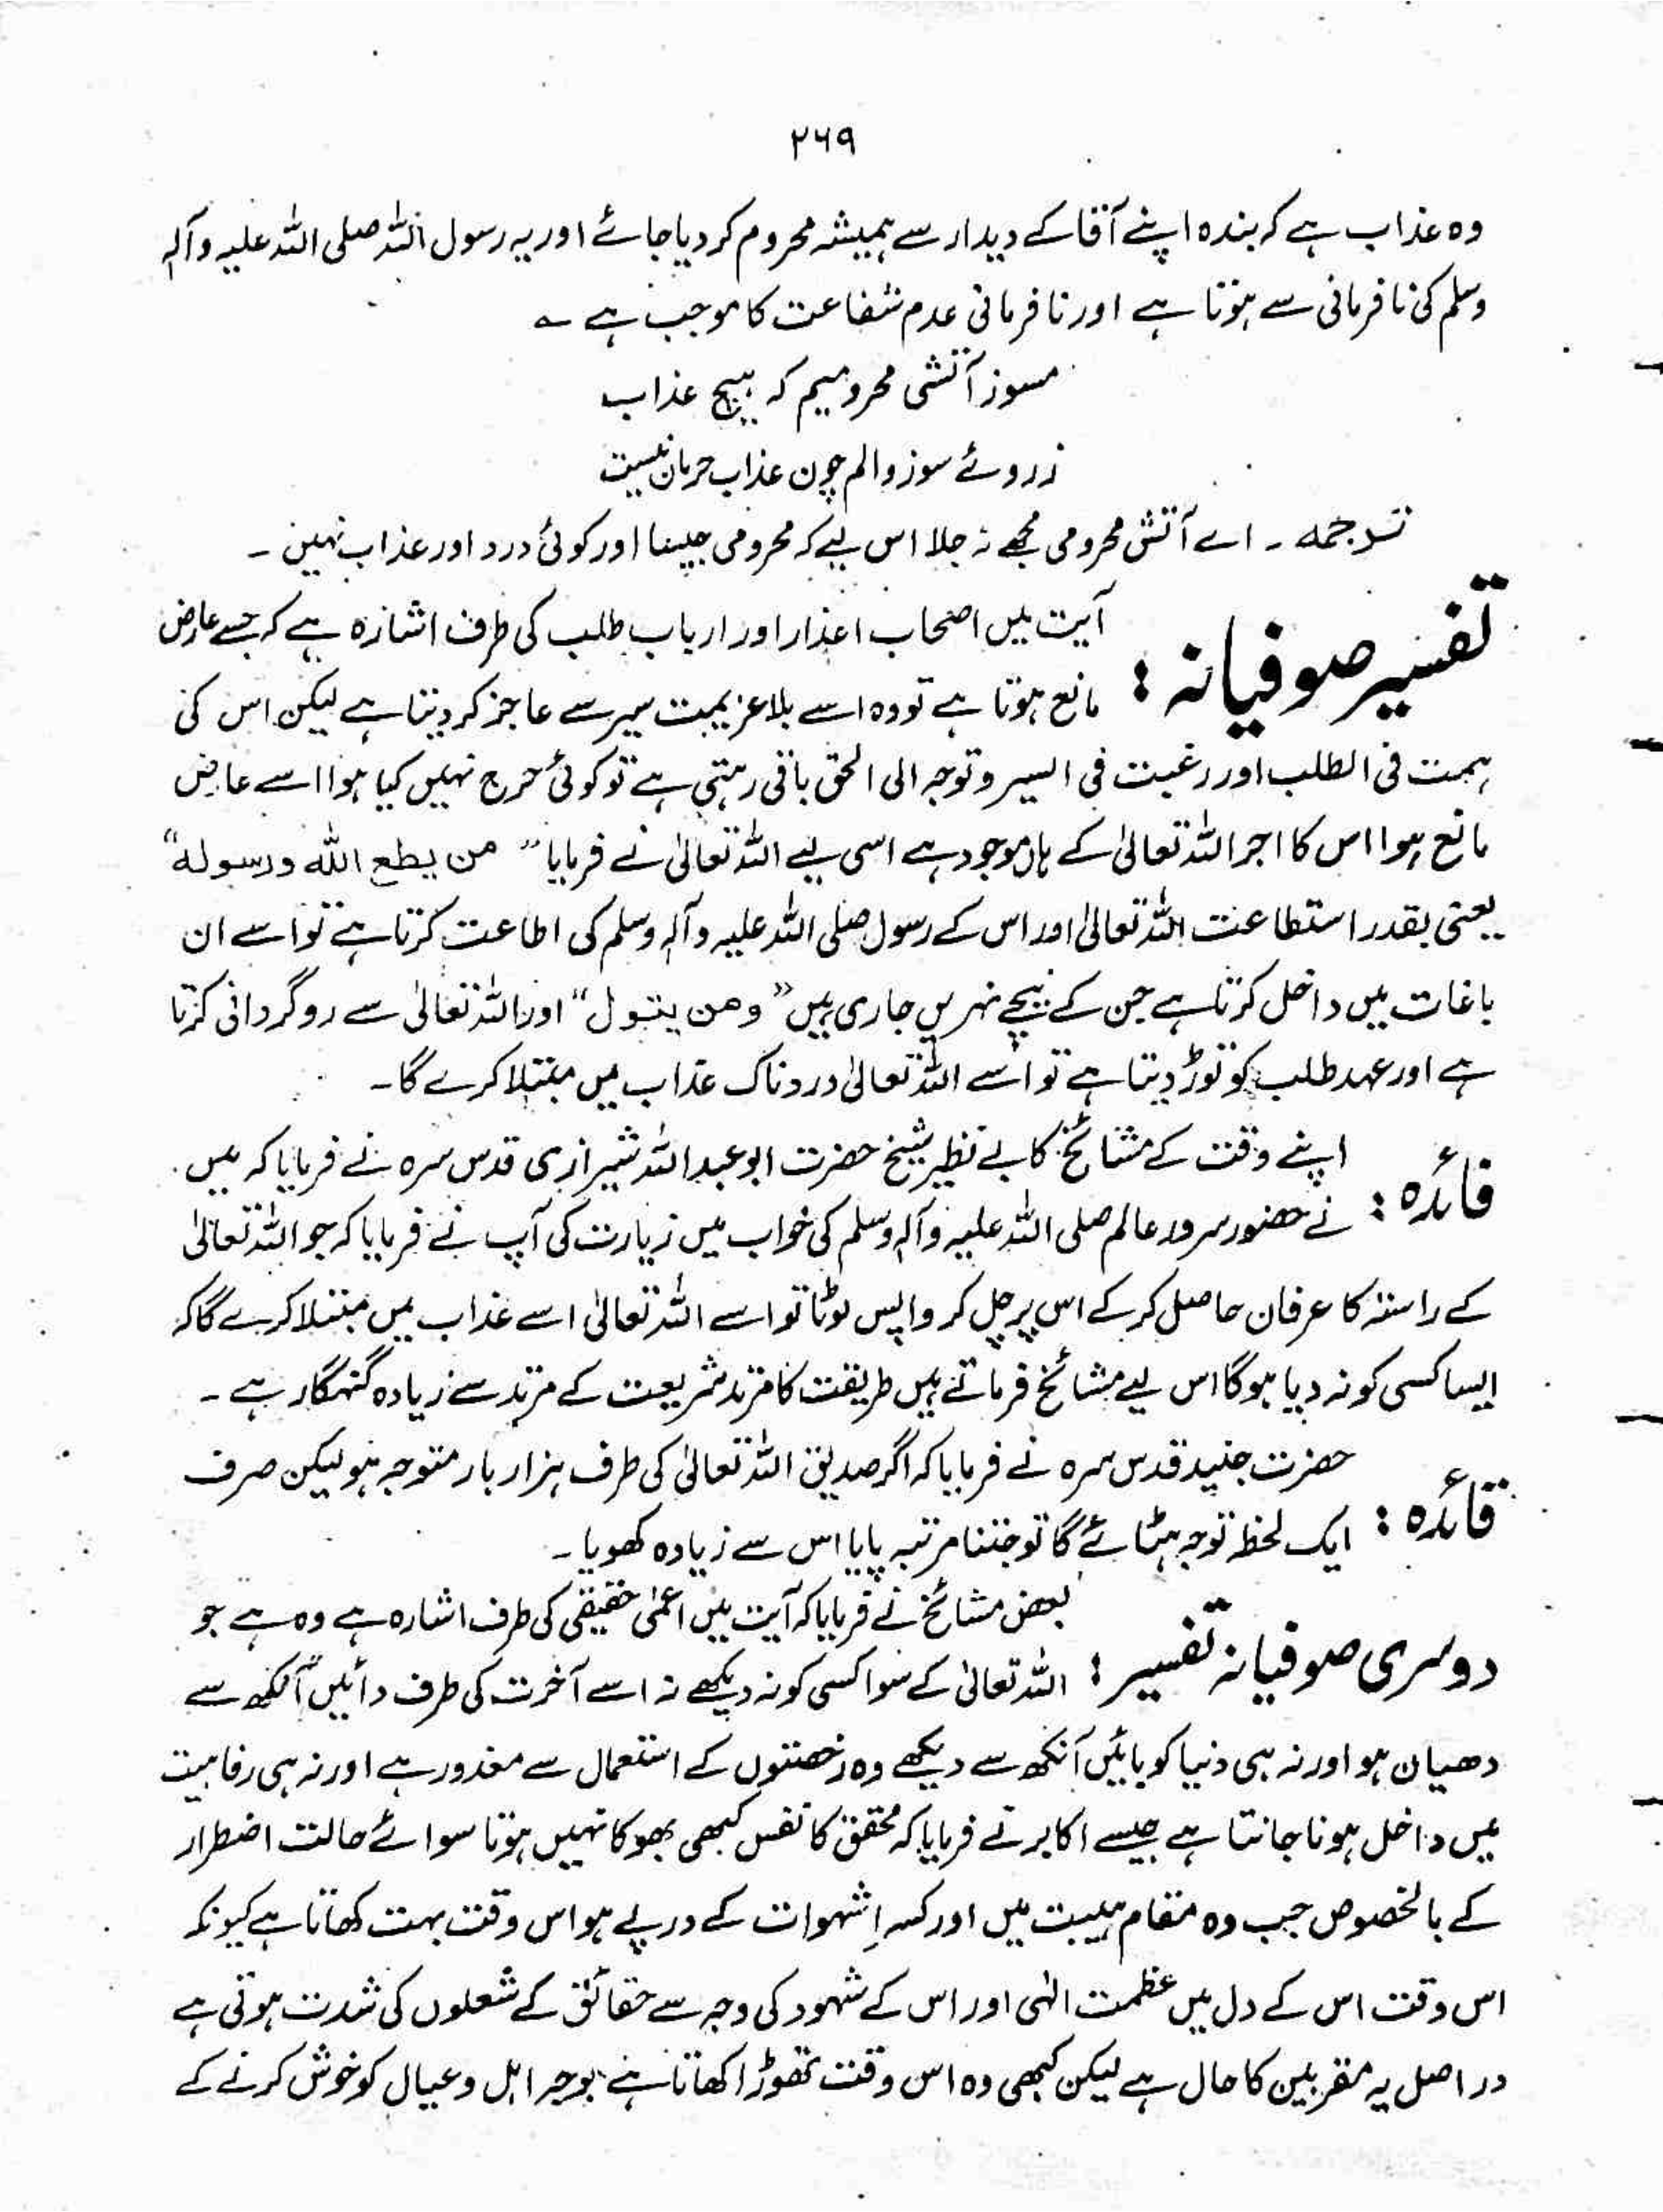 ۲۶۹
وہ عذاب ہے کہ بندہ اپنے آقا کے دیدار سے ہمیشہ محروم کر دیا جائے اور یہ رسول اللہ صلی اللہ علیہ وآلہ
وسلم کی نافرمانی سے ہوتا ہے اور نافرمانی عدم شفاعت کا موجب ہے ؎
مسوز آتشی محرومیم کہ ہیچ عذاب
زروئے سوز و الم چون عذاب حرمان نیست
ترجمہ ۔ اے آتش محرومی مجھے نہ جلا اس لیے کہ محرومی جیسا اور کوئی درد اور عذاب نہیں ۔
تفسیر صوفیانہ : آیت میں اصحاب اعذار اور ارباب طلب کی طرف اشارہ ہے کہ جسے عارض
مانع ہوتا ہے تو وہ اسے بلا عزیمت سیر سے عاجز کر دیتا ہے لیکن اس کی
ہمت فی الطلب اور رغبت فی السیر و توجہ الی الحق باقی رہتی ہے تو کوئی حرج نہیں کیا ہوا اسے عارض
مانع ہوا اس کا اجر اللہ تعالیٰ کے ہاں موجود ہے اسی لیے اللہ تعالیٰ نے فرمایا ” من یطع اللہ ورسولہ “
یعنی بقدر استطاعت اللہ تعالیٰ اور اس کے رسول صلی اللہ علیہ وآلہ وسلم کی اطاعت کرتا ہے تو اسے ان
باغات میں داخل کرتا ہے جن کے نیچے نہریں جاری ہیں ” ومن یتول “ اور اللہ تعالیٰ سے روگردانی کرتا
ہے اور عہد طلب کو توڑ دیتا ہے تو اسے اللہ تعالیٰ دردناک عذاب میں مبتلا کرے گا ۔
فائدہ : اپنے وقت کے مشائخ کا بے نظیر شیخ حضرت ابو عبد اللہ شیرازی قدس سرہ نے فرمایا کہ میں
نے حضور سرور عالم صلی اللہ علیہ وآلہ وسلم کی خواب میں زیارت کی آپ نے فرمایا کہ جو اللہ تعالیٰ
کے راستہ کا عرفان حاصل کر کے اس پر چل کر واپس لوٹا تو اسے اللہ تعالیٰ اسے عذاب میں مبتلا کرے گا کہ
ایسا کسی کو نہ دیا ہوگا اس لیے مشائخ فرماتے ہیں طریقت کا مرتد شریعت کے مرتد سے زیادہ گنہگار ہے ۔
فائدہ : حضرت جنید قدس سرہ نے فرمایا کہ اگر صدیق اللہ تعالیٰ کی طرف ہزار بار متوجہ ہو لیکن صرف
ایک لحظہ توجہ ہٹائے گا تو جتنا مرتبہ پایا اس سے زیادہ کھویا ۔
دوسری صوفیانہ تفسیر : بعض مشائخ نے فرمایا کہ آیت میں اعمٰی حقیقی کی طرف اشارہ ہے وہ ہے جو
اللہ تعالیٰ کے سوا کسی کو نہ دیکھے نہ اسے آخرت کی طرف دائیں آنکھ سے
دھیان ہو اور نہ ہی دنیا کو بائیں آنکھ سے دیکھے وہ رخصتوں کے استعمال سے معذور ہے اور نہ ہی رفاہیت
میں داخل ہونا جانتا ہے جیسے اکابر نے فرمایا کہ محقق کا نفس کبھی بھوکا نہیں ہوتا سوائے حالت اضطرار
کے بالخصوص جب وہ مقام ہیبت میں اور کسرِ شہوات کے درپے ہو اس وقت بہت کھاتا ہے کیونکہ
اس وقت اس کے دل میں عظمت الٰہی اور اس کے شہود کی وجہ سے حقائق کے شعلوں کی شدت ہوتی ہے
دراصل یہ مقربین کا حال ہے لیکن کبھی وہ اس وقت تھوڑا کھاتا ہے بوجہ اہل و عیال کو خوش کرنے کے